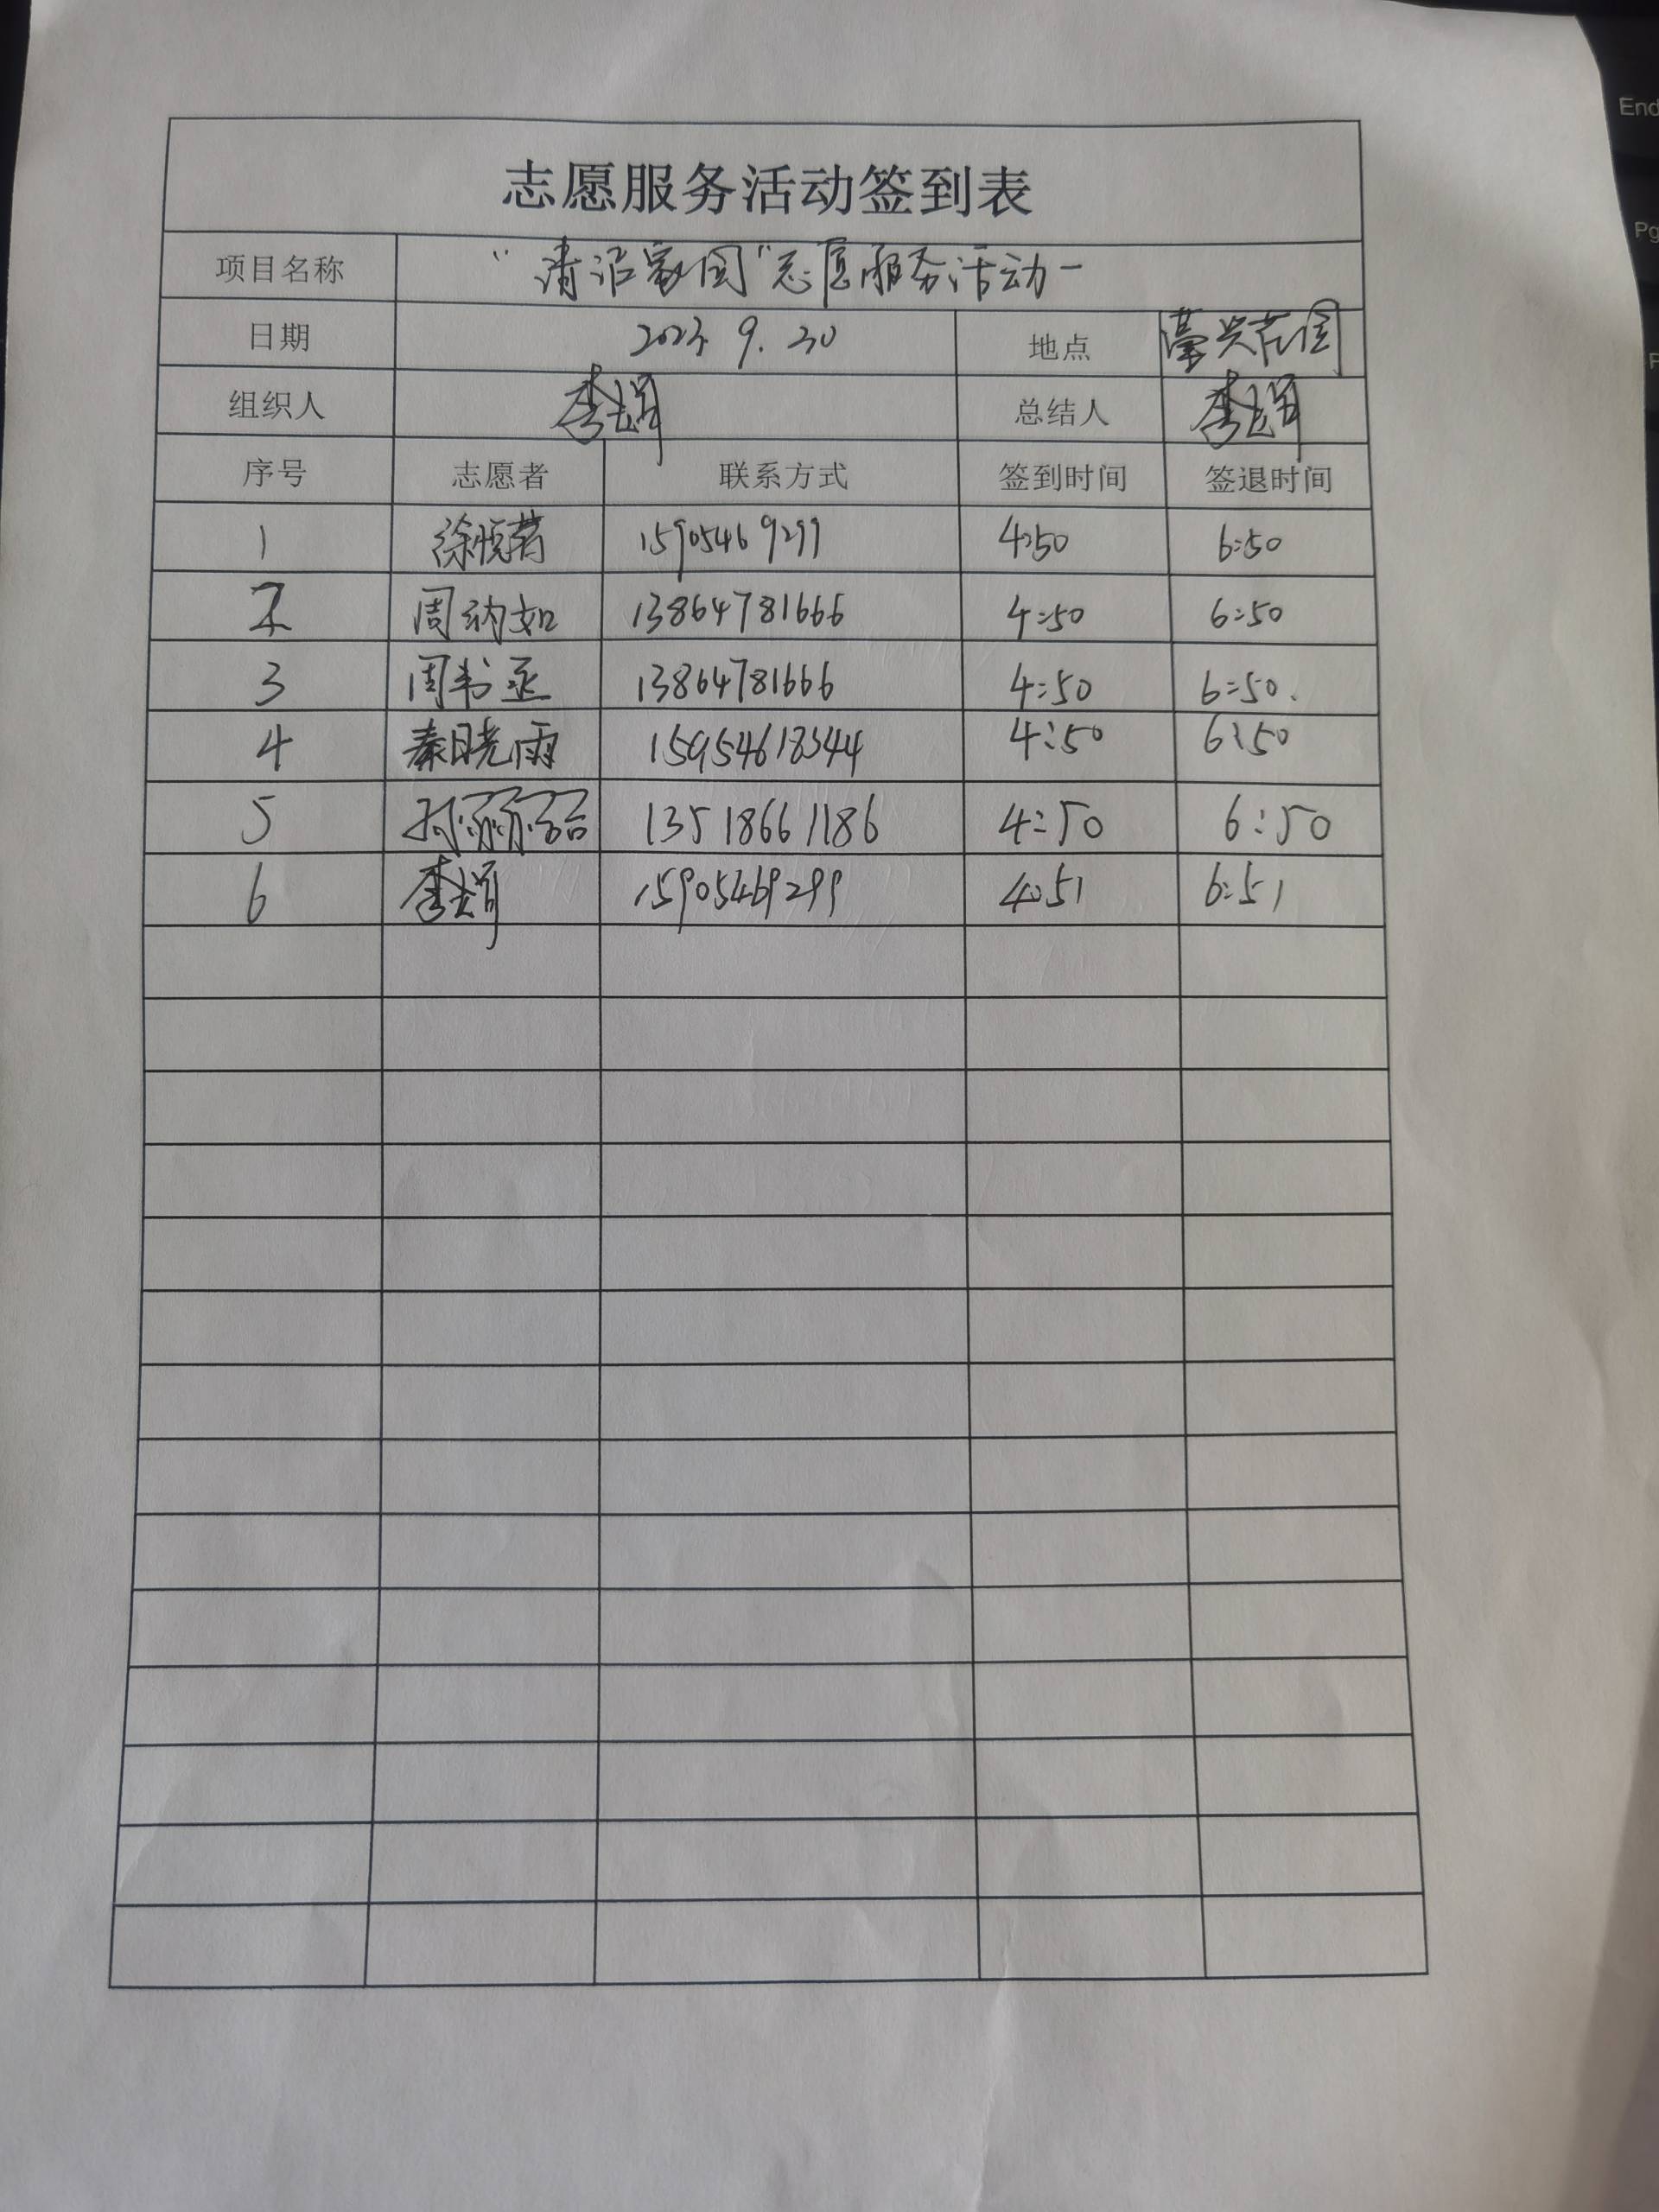 志愿服务活动签到表
项目名称 "清洁家园"志愿服务活动一
日期 2023.9.30 地点
组织人 李娟 总结人 李娟
序号 志愿者 联系方式 签到时间 签退时间
1 15905469299 4:50 6:50
2 周纳如 13864781666 4:50 6:50
3 周书丞 13864781666 4:50 6:50.
4 秦晓雨 15954618344 4:50 6:50
5 13518661186 4:50 6:50
6 李娟 15905469299 4:51 6:51
End